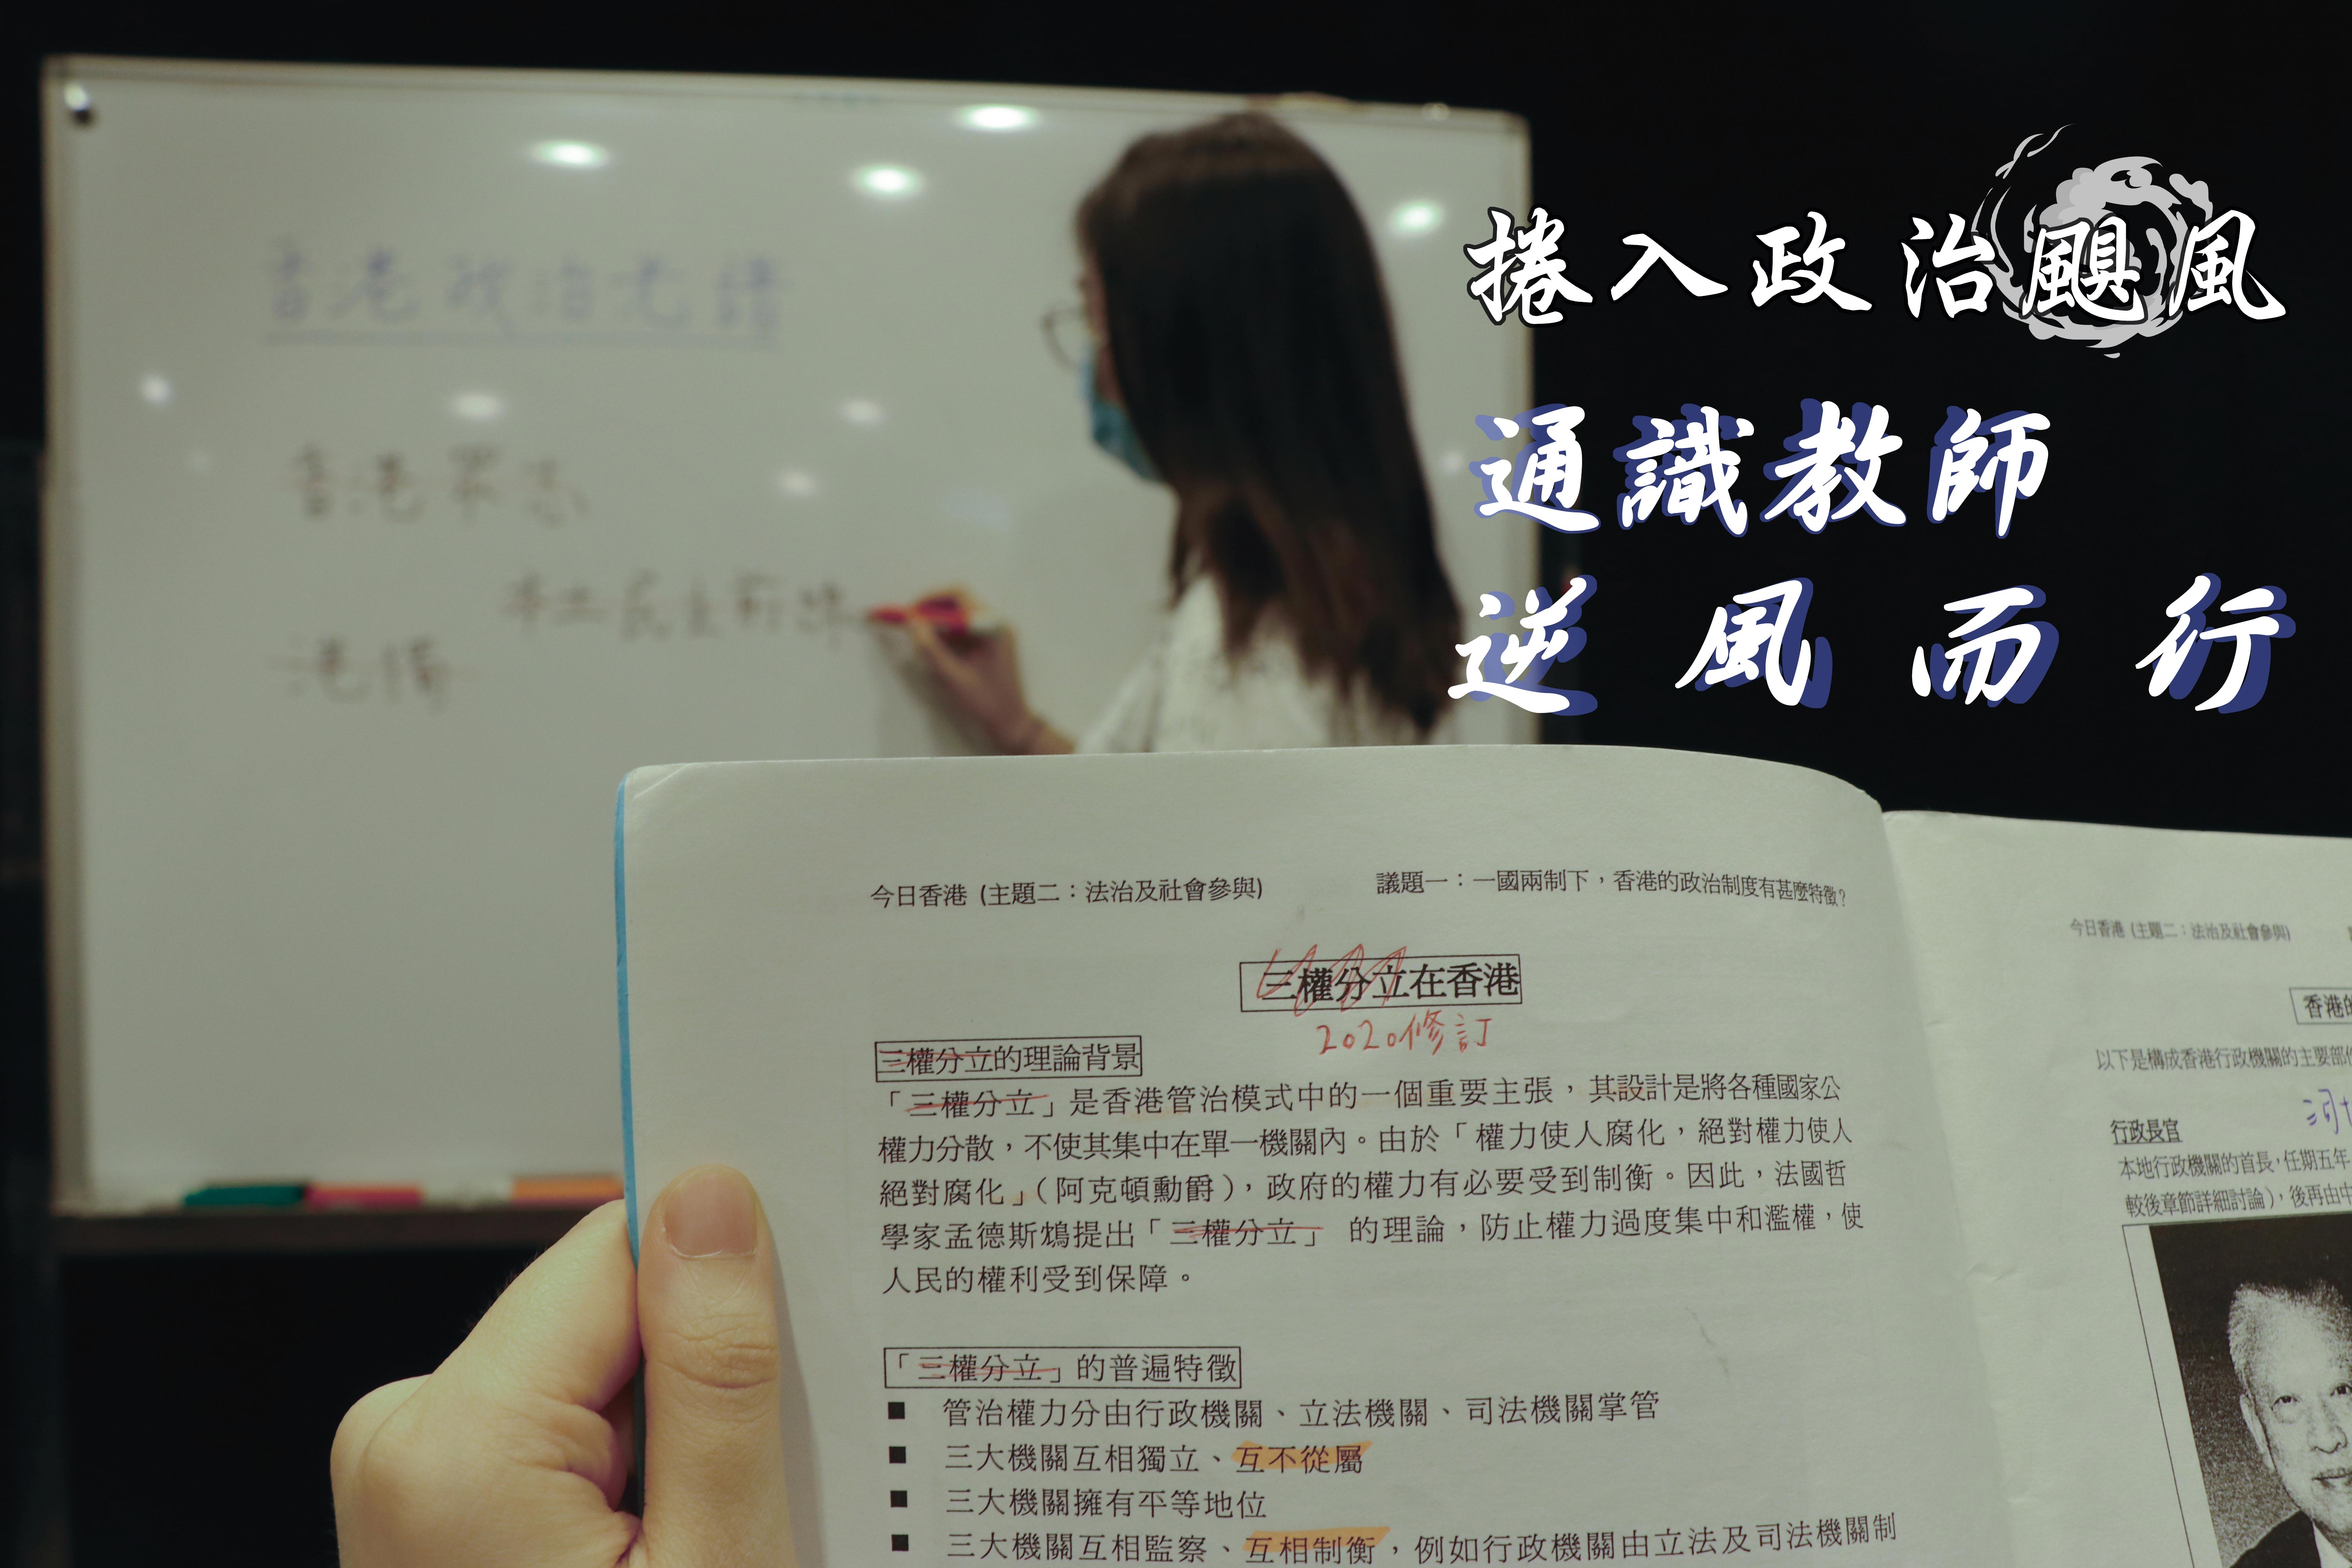 捲入政治颶風
通識教師
逆風而行
香港政治光譜
香港眾志
本土民主前線
港獨
今日香港 (主題二：法治及社會參與)
議題一：一國兩制下，香港的政治制度有甚麼特徵？
三權分立在香港
2020修訂
三權分立的理論背景
「三權分立」是香港管治模式中的一個重要主張，其設計是將各種國家公
權力分散，不使其集中在單一機關內。由於「權力使人腐化，絕對權力使人
絕對腐化」（阿克頓勳爵），政府的權力有必要受到制衡。因此，法國哲
學家孟德斯鳩提出「三權分立」 的理論，防止權力過度集中和濫權，使
人民的權利受到保障。
「三權分立」的普遍特徵
■ 管治權力分由行政機關、立法機關、司法機關掌管
■ 三大機關互相獨立、互不從屬
■ 三大機關擁有平等地位
■ 三大機關互相監察、互相制衡，例如行政機關由立法及司法機關制
今日香港 (主題二：法治及社會參與)
香港的
以下是構成香港行政機關的主要部
行政長官
本地行政機關的首長，任期五年
較後章節詳細討論），後再由中